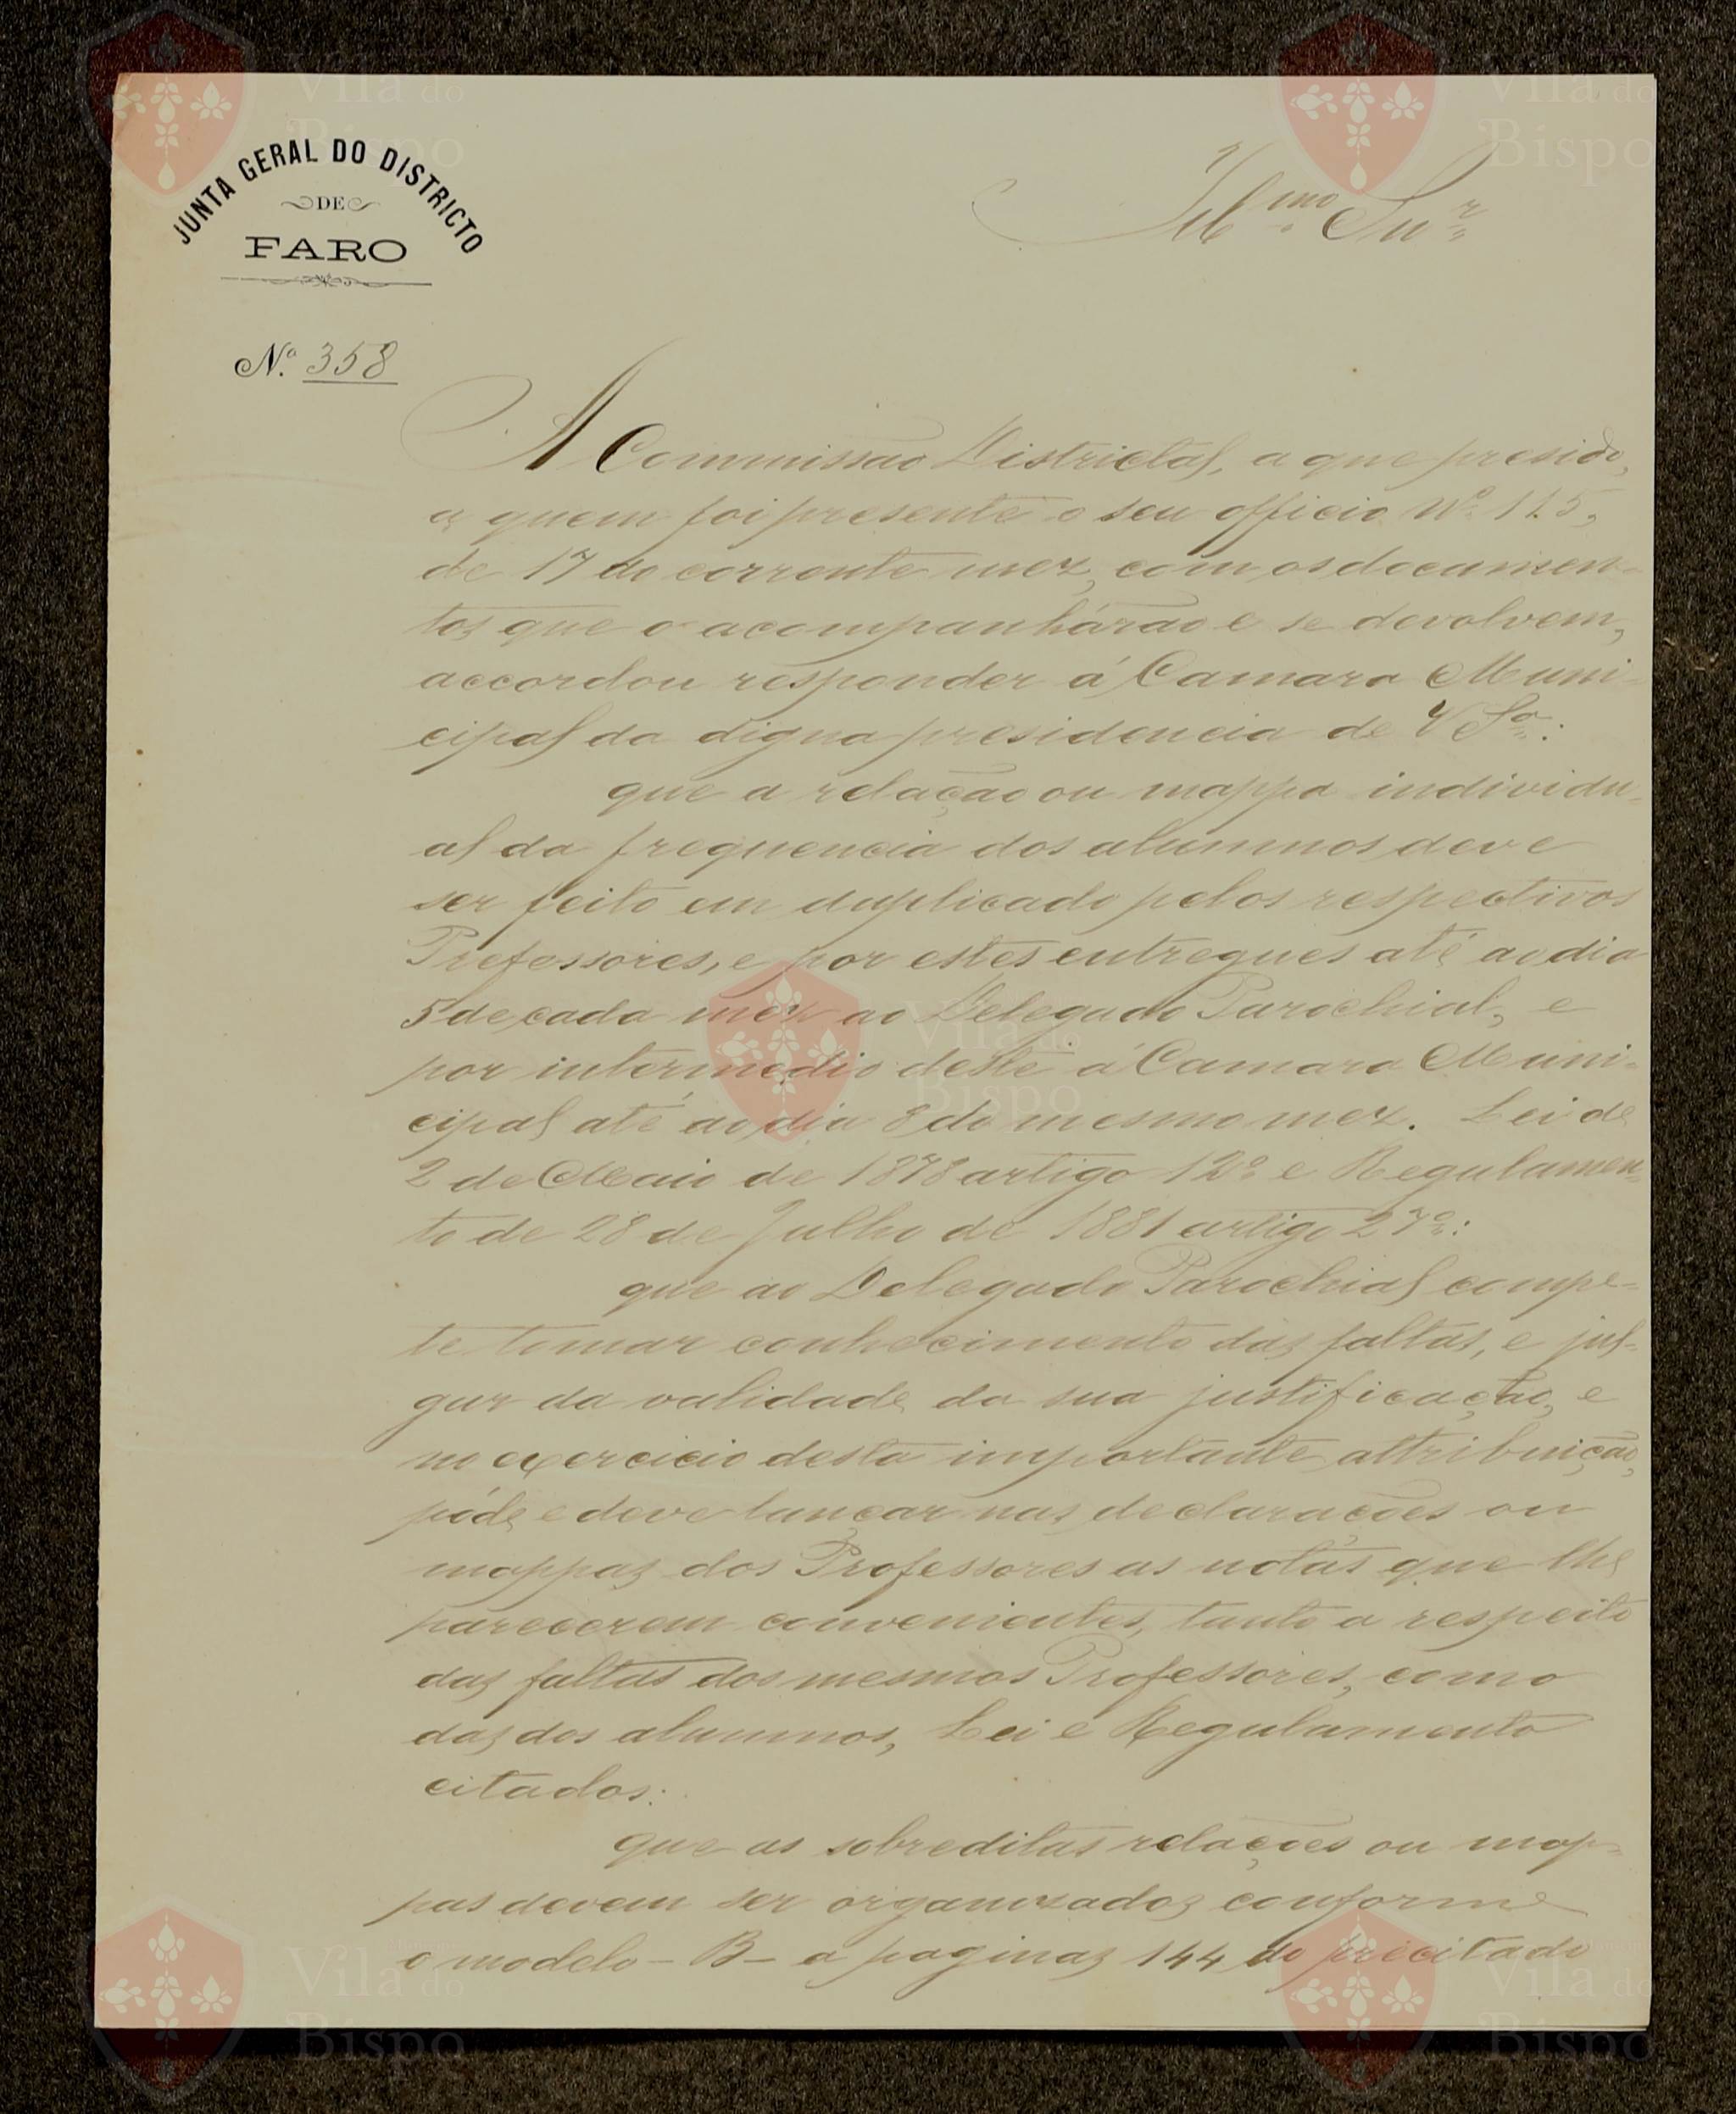 JUNTA GERAL DO DISTRICTO
DE
FARO
N.º 358
Ill.mo Snr.
A Commissão Districtal, a que presido,
a quem foi presente o seu officio Nº 115,
de 17 do corrente mez, com os documen-
tos que o acompanhárão e se devolvem,
accordou responder á Camara Muni-
cipal da digna presidencia de V Sa.:
que a relação ou mappa individu-
al da frequencia dos alumnos deve
ser feito em duplicado pelos respectivos
Professores, e por estes entregues até ao dia
5 de cada mez ao Delegado Parochial, e
por intermedio deste á Camara Muni-
cipal até ao dia 8 do mesmo mez. Lei de
2 de Maio de 1878 artigo 12º e Regulamen-
to de 28 de Julho de 1881 artigo 27º:
que ao Delegado Parochial compe-
te tomar conhecimento das faltas, e jul-
gar da validade da sua justificação, e
no exercicio desta importante attribuição,
póde e deve lançar nas declarações ou
mappas dos Professores as notas que lhe
parecerem convenientes, tanto a respeito
das faltas dos mesmos Professores, como
das dos alumnos, Lei e Regulamento
citados:
que as sobreditas relações ou map-
pas devem ser organizados conforme
o modelo - B - a paginas 144 do precitado
Vila do
Bispo
Vila do
Bispo
Vila do
Bispo
Vila do
Bispo
Vila do
Bispo